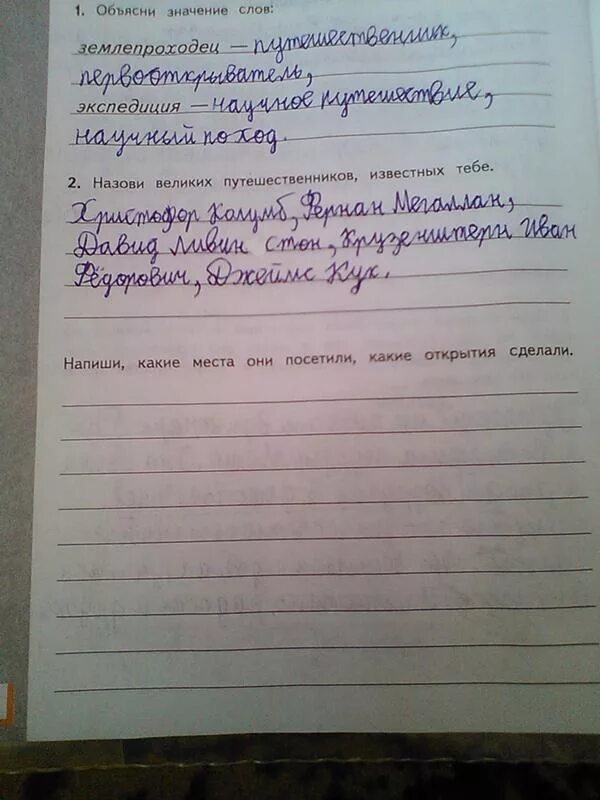 1. Объясни значение слов:
землепроходец — путешественник,
первооткрыватель,
экспедиция — научное путешествие,
научный поход.
2. Назови великих путешественников, известных тебе.
Христофор Колумб, Фернан Мегаллан,
Давид Ливин стон, Крузенштерн Иван
Фёдорович, Джеймс Кук.
Напиши, какие места они посетили, какие открытия сделали.